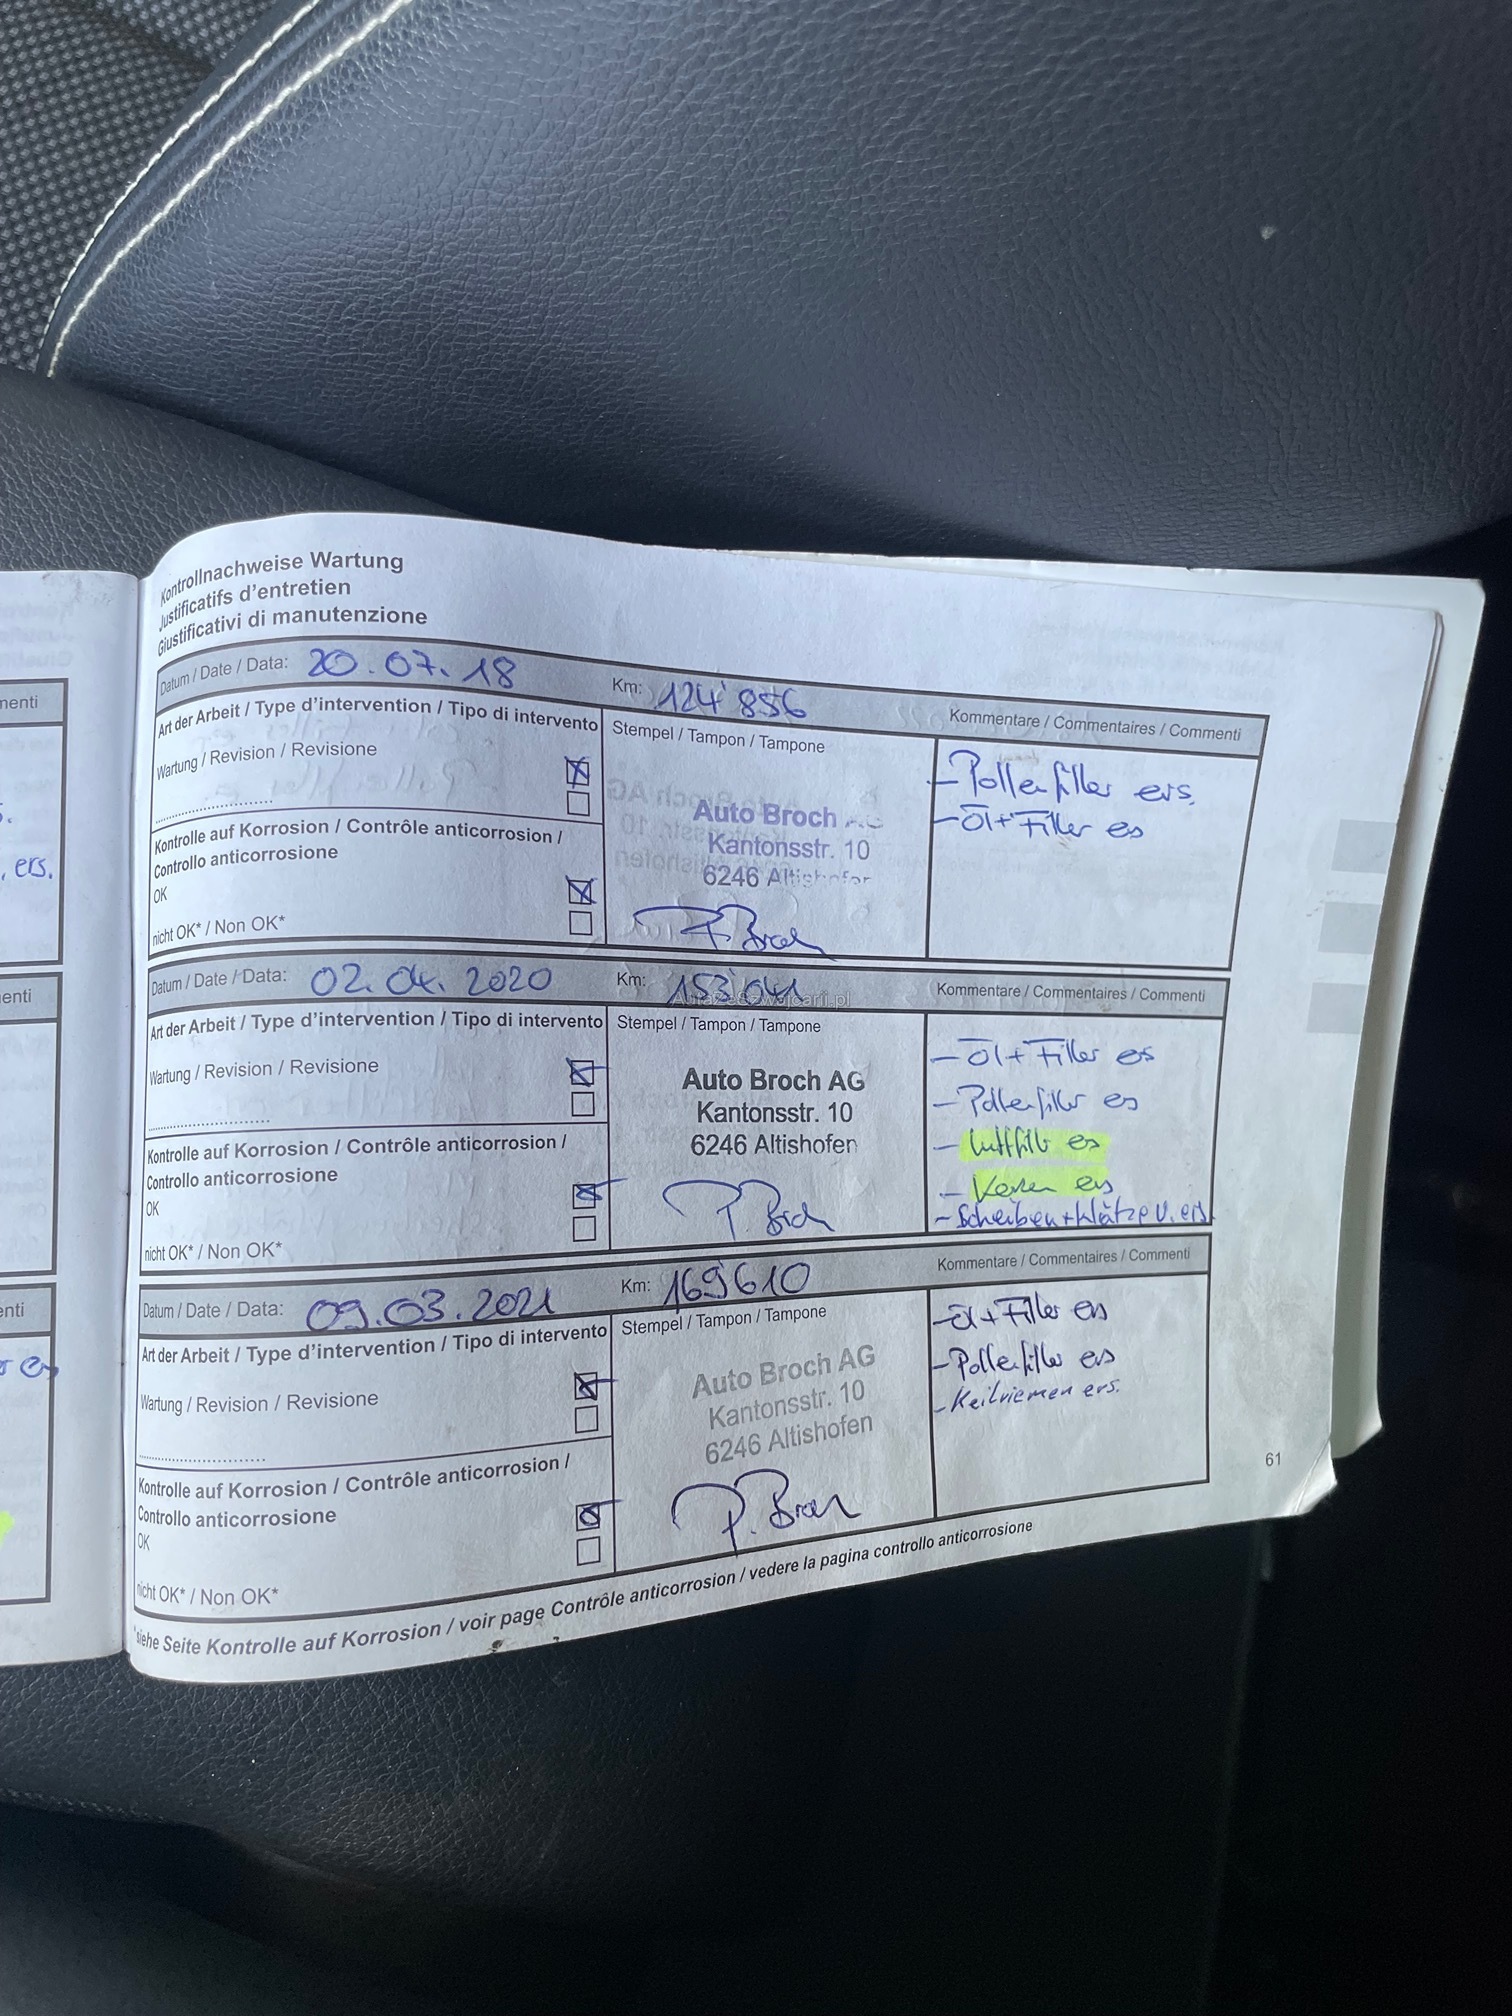 Kontrollnachweise Wartung
Justificatifs d'entretien
Giustificativi di manutenzione
Datum / Date / Data: 20.07.18 Km: 124'856
Kommentare / Commentaires / Commenti
Art der Arbeit / Type d'intervention / Tipo di intervento
Stempel / Tampon / Tampone
Wartung / Revision / Revisione
Kontrolle auf Korrosion / Contrôle anticorrosion /
Controllo anticorrosione
OK
nicht OK* / Non OK*
Auto Broch AG
Kantonsstr. 10
6246 Altishofen
P. Broch
- Pollenfilter ers.
- Öl + Filter es
Datum / Date / Data: 02.04.2020 Km: 153'041
Kommentare / Commentaires / Commenti
Art der Arbeit / Type d'intervention / Tipo di intervento
Stempel / Tampon / Tampone
Wartung / Revision / Revisione
Kontrolle auf Korrosion / Contrôle anticorrosion /
Controllo anticorrosione
OK
nicht OK* / Non OK*
AutazeSzwajcarii.pl
Auto Broch AG
Kantonsstr. 10
6246 Altishofen
P. Broch
- Öl + Filter es
- Pollenfilter es
- Luftfilter es
- Kerzen ers
- Scheiben + Klötze v. ers.
Datum / Date / Data: 09.03.2021 Km: 169'610
Kommentare / Commentaires / Commenti
Art der Arbeit / Type d'intervention / Tipo di intervento
Stempel / Tampon / Tampone
Wartung / Revision / Revisione
Kontrolle auf Korrosion / Contrôle anticorrosion /
Controllo anticorrosione
OK
nicht OK* / Non OK*
Auto Broch AG
Kantonsstr. 10
6246 Altishofen
P. Broch
- Öl + Filter ers
- Pollenfilter ers
- Keilriemen ers.
*siehe Seite Kontrolle auf Korrosion / voir page Contrôle anticorrosion / vedere la pagina controllo anticorrosione
61
menti
, ers.
enti
enti